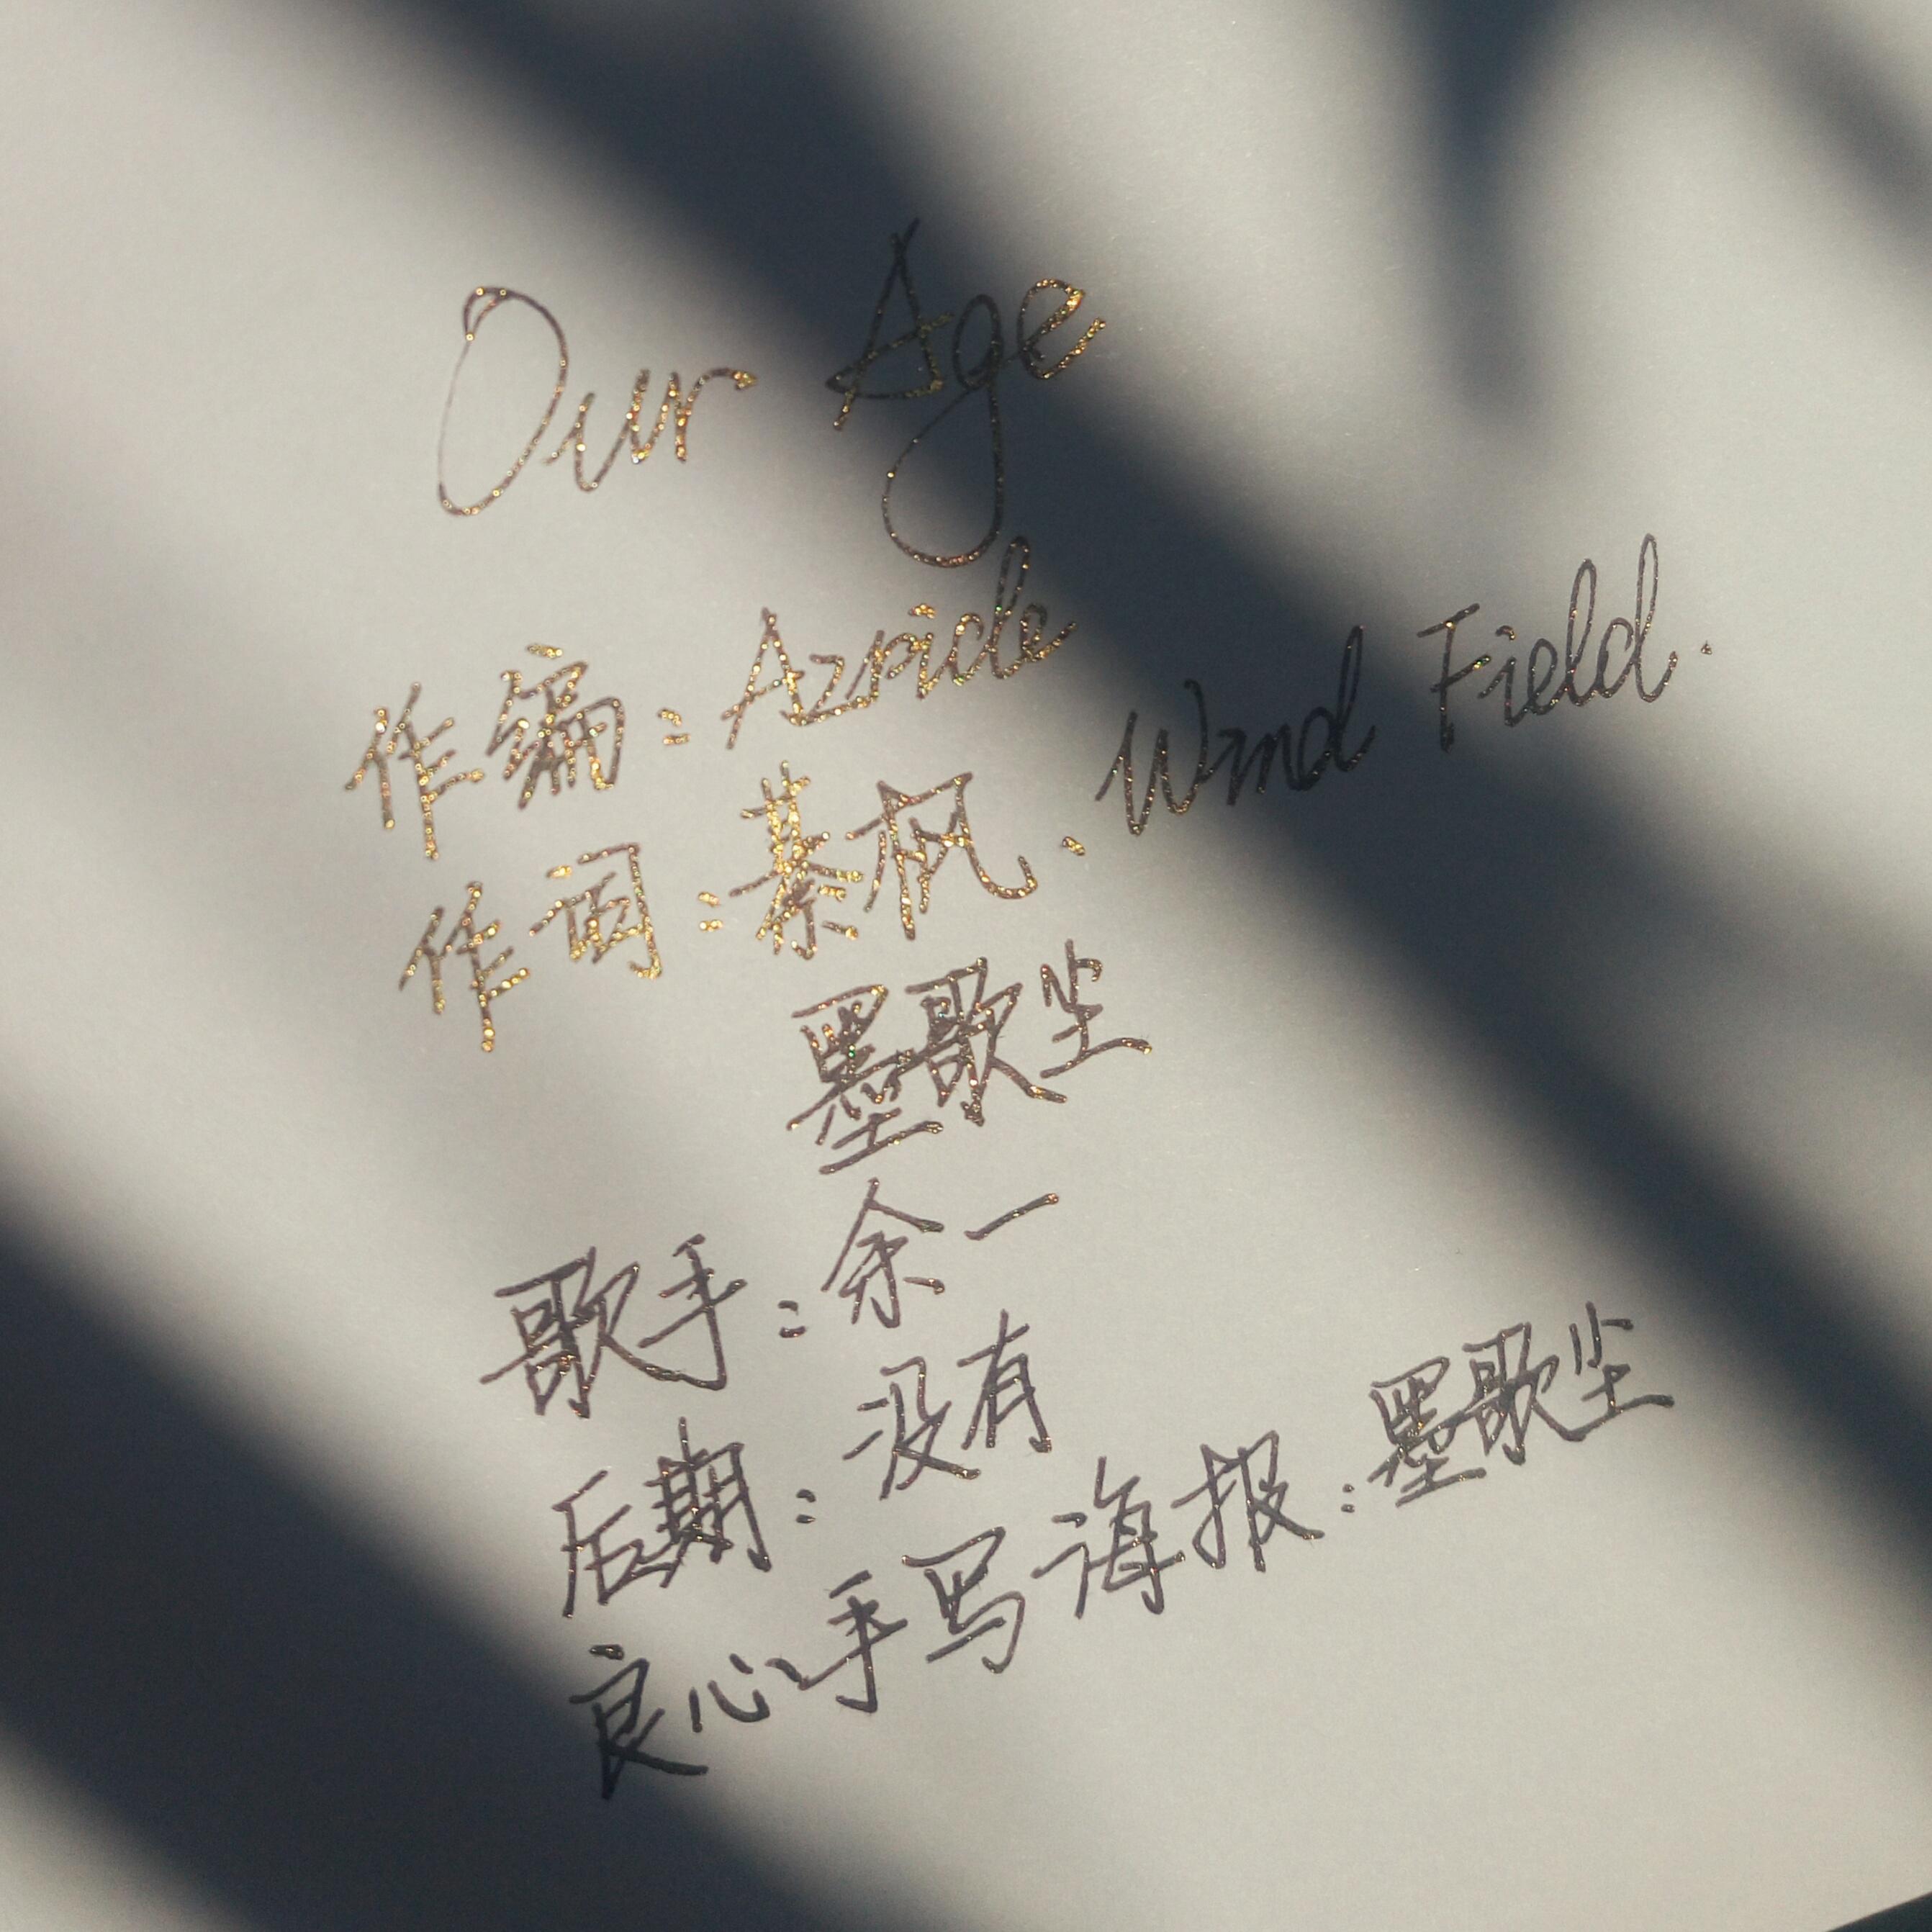 Our Age
作编：Azricle
作词：綦枫、Wind Field.
墨歌尘
歌手：余一
后期：没有
良心手写海报：墨歌尘